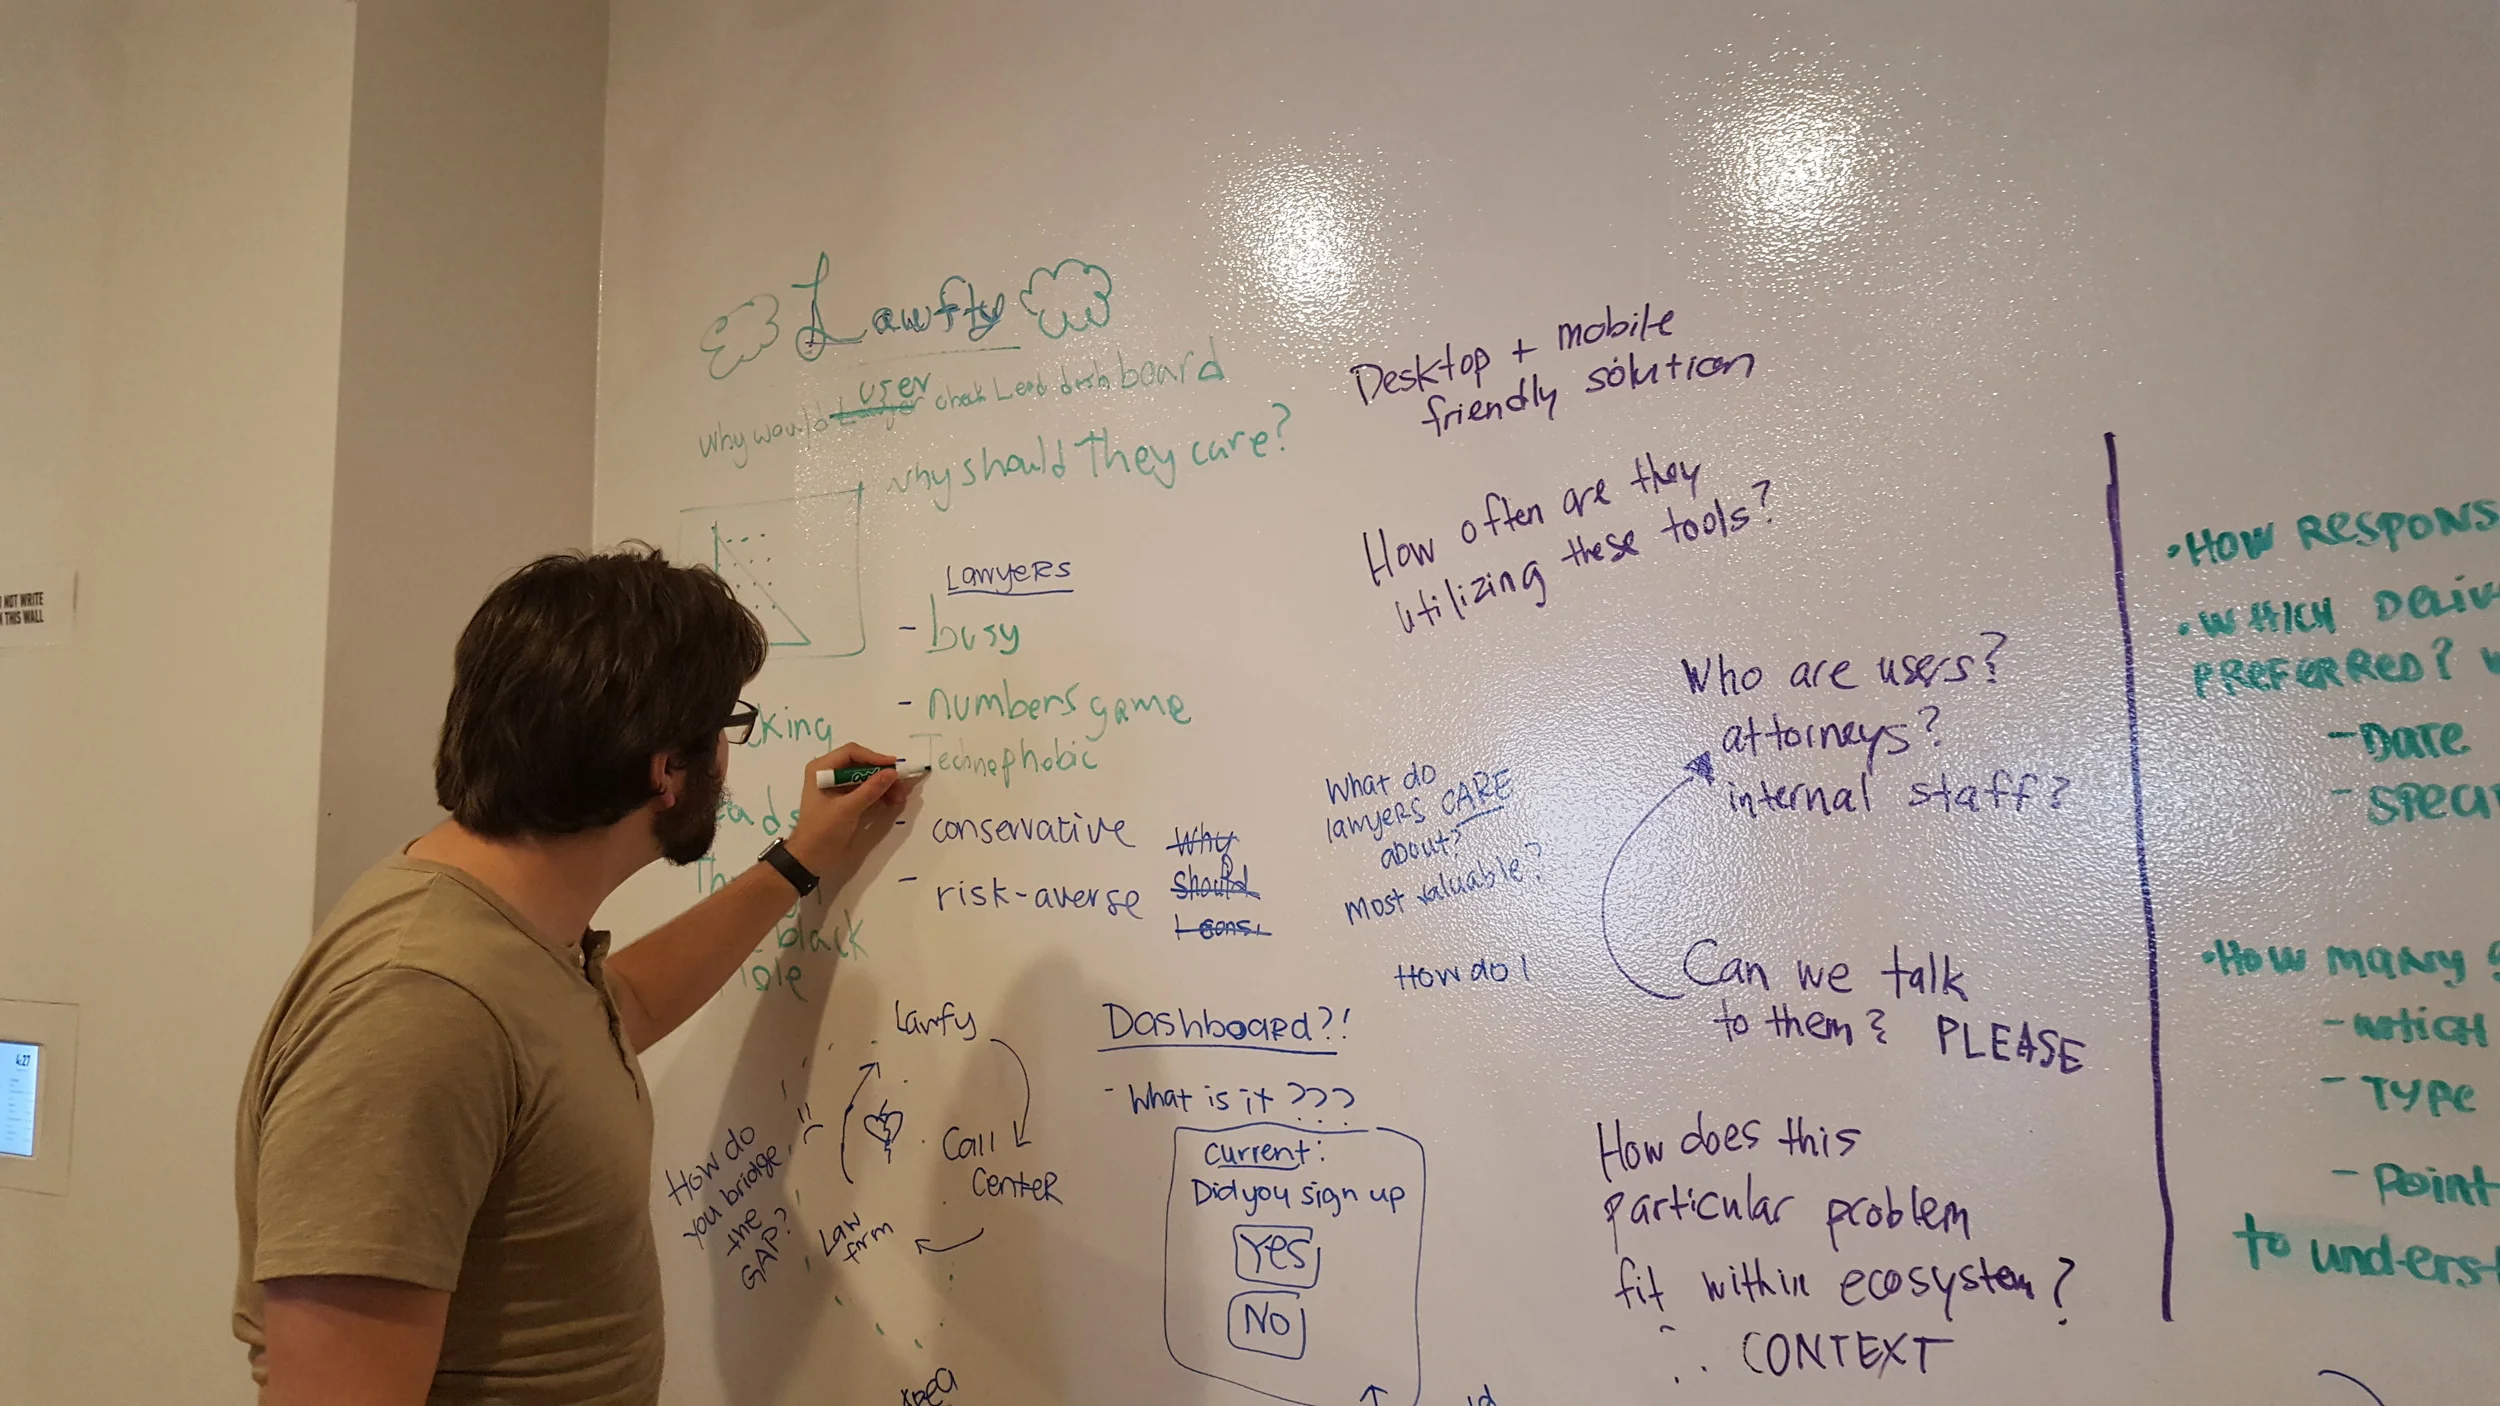 Lawfty
Why would user check Lead dashboard
Why should They care?
Lawyers
- busy
- numbers game
- Technophobic
- conservative
- risk-averse
Why
should
king
black
Lawfy
Call
Center
Law
firm
How do
you bridge
the
GAP?
Desktop + mobile
friendly solution
How often are they
utilizing these tools?
What do
lawyers CARE
about?
Most valuable?
How do I
Dashboard?!
- What is it ???
Current:
Did you sign up
Yes
No
Who are users?
attorneys?
internal staff?
Can we talk
to them? PLEASE
How does this
particular problem
fit within ecosystem?
∴ CONTEXT
• HOW RESPONS
• WHICH DELIV
PREFERRED?
- DATE
- SPECI
• HOW MANY
- WHICH
- TYPE
- POINT
to underst
NOT WRITE
THIS WALL
4:27